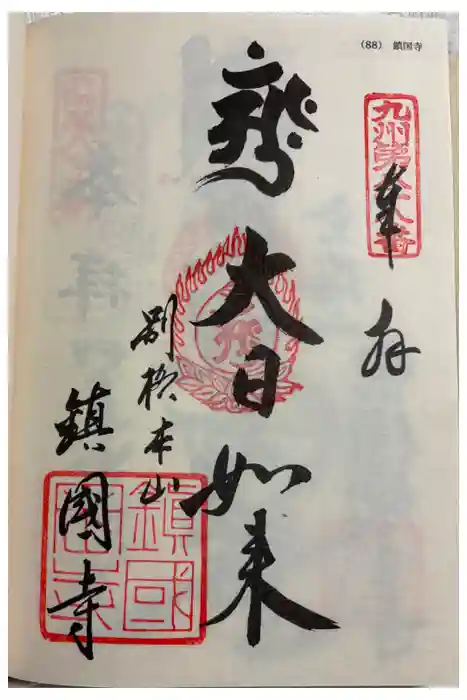 (88) 鎮国寺
九州第八十八番
奉拝
大日如来
別格本山
鎮國寺
鎮國寺